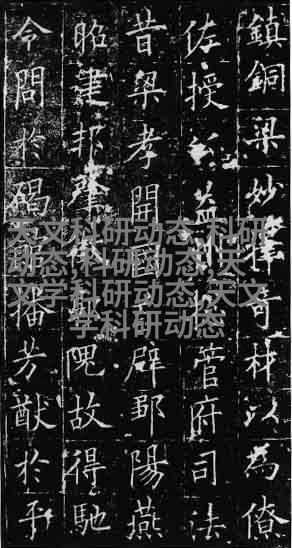 鎮銅梁妙擇奇材以為僚
佐授益州管府司法
昔梁孝開國辟鄒陽燕
昭建邦肇隗故得馳
令問於碣館播芳猷於平
天文科研动态,科研
动态,科研动态,天
文学科研动态,天文
学科研动态